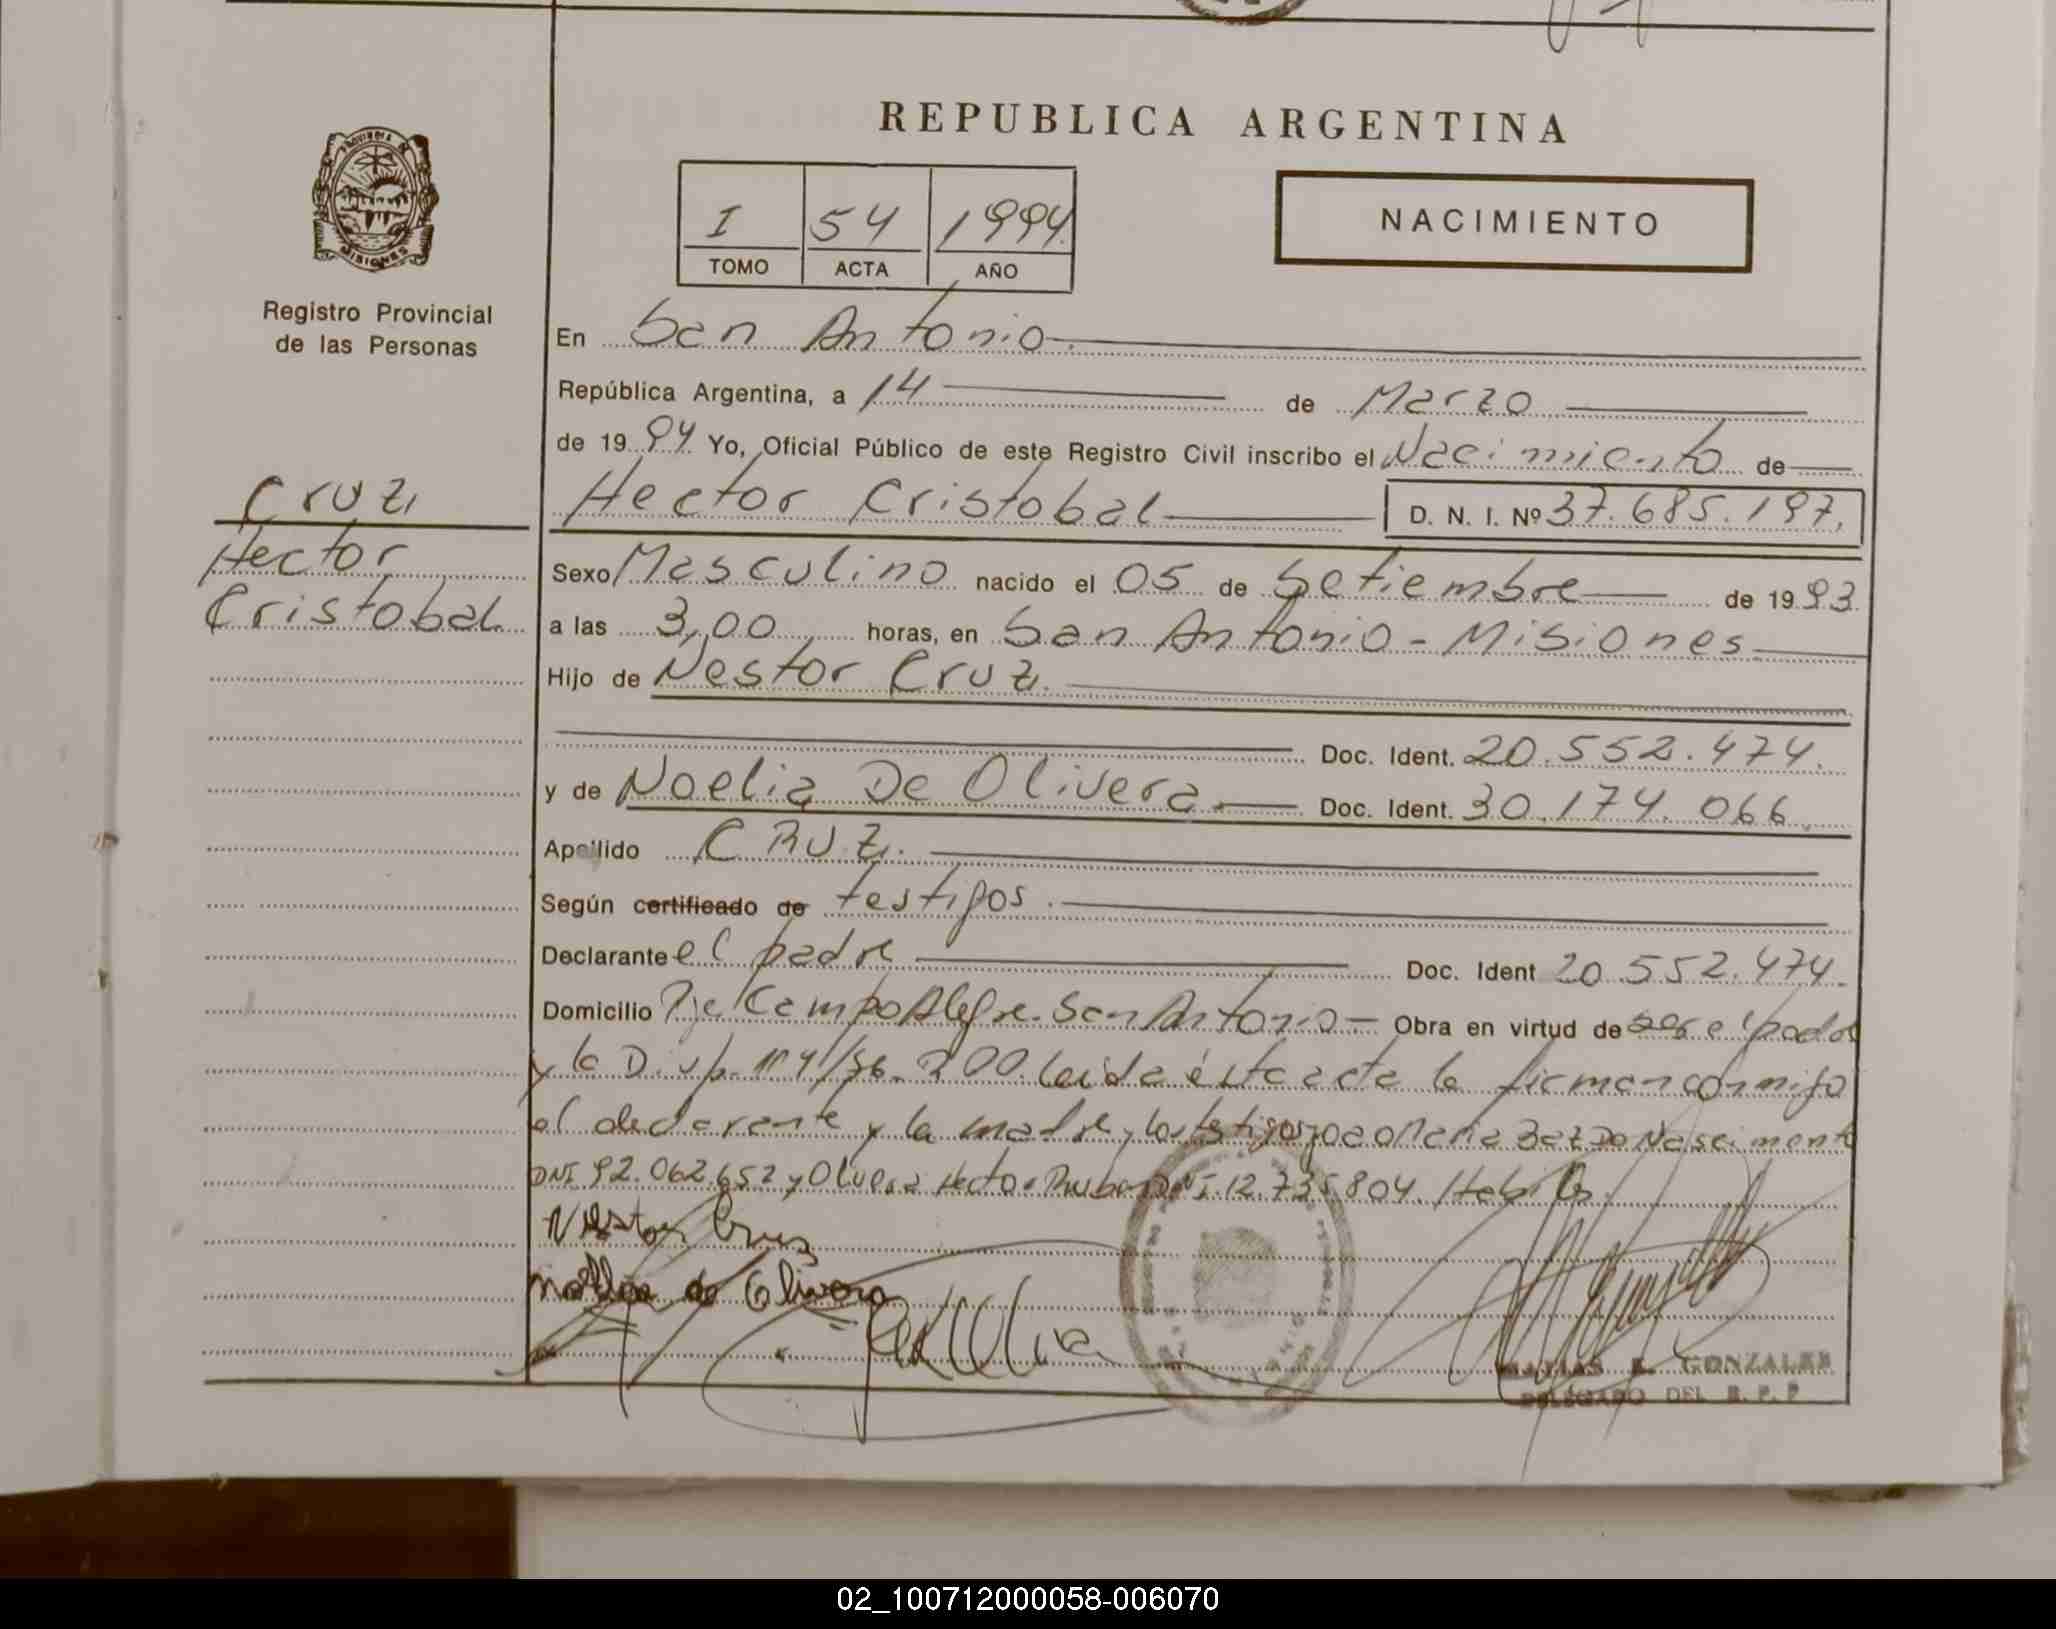 REPUBLICA ARGENTINA
PROVINCIA
MISIONES
Registro Provincial
de las Personas
I 54 1994
TOMO ACTA AÑO
NACIMIENTO
En San Antonio
República Argentina, a 14 de Marzo
de 1994 Yo, Oficial Público de este Registro Civil inscribo el Nacimiento de
Cruz
Hector Cristobal D. N. I. Nº 37.685.197.
Hector
Cristobal
Sexo Masculino nacido el 05 de Setiembre de 1993
a las 3,00 horas, en San Antonio - Misiones
Hijo de Nestor Cruz.
Doc. Ident. 20.552.474.
y de Noelia De Olivera Doc. Ident. 30.174.066.
Apellido CRUZ.
Según certificado de testigos.
Declarante el padre Doc. Ident 20.552.474.
Domicilio Pje Campo Alegre. San Antonio - Obra en virtud de ser el padre
y la D. 200. leida ésta acta la firman conmigo
el declarante y la madre, los testigos Joao Maria Do Nascimento
DNI 92.062.652 y Olivera Hector Ruben DNI. 12.735.804.
Nestor Cruz
Noelia de Olivera
GONZALEZ
DELEGADO DEL R. P. P
02_100712000058-006070